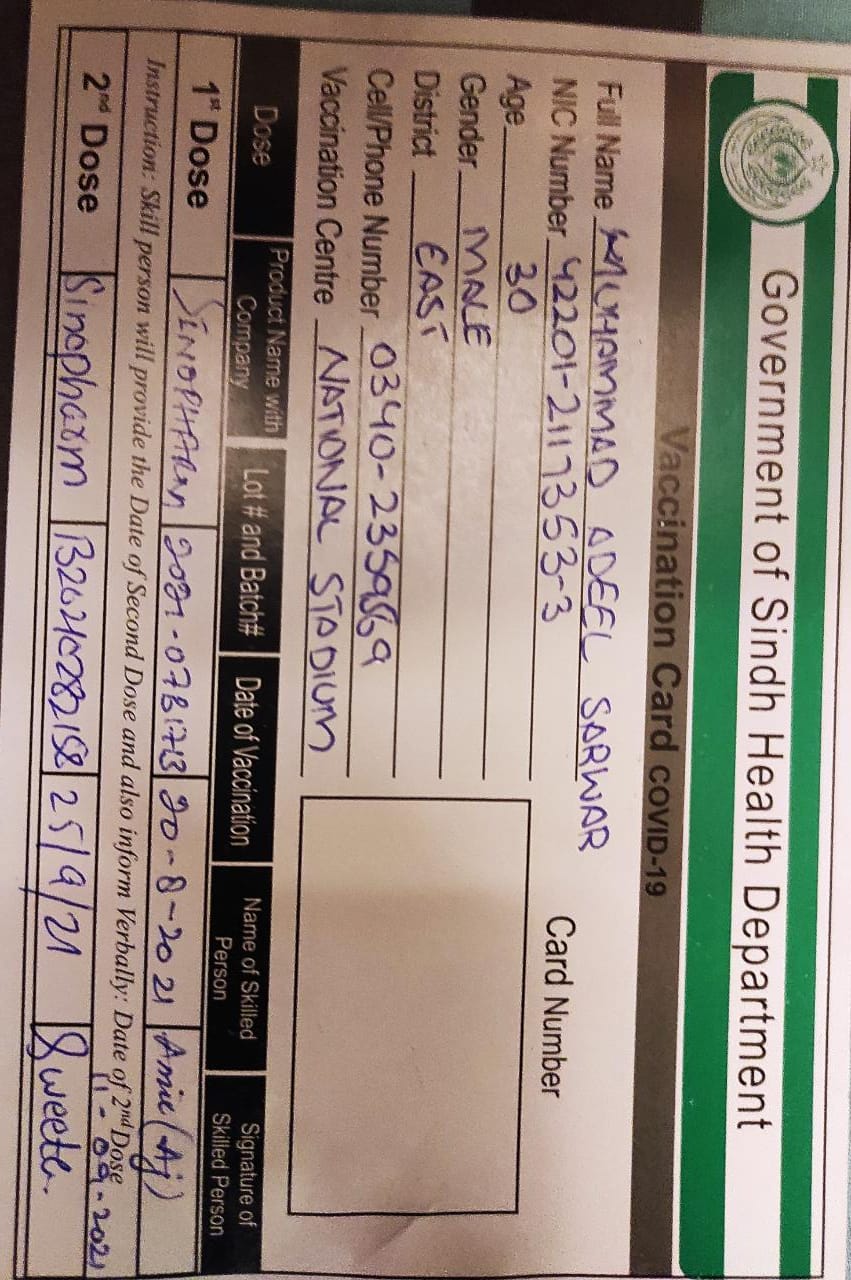 Government of Sindh Health Department
Vaccination Card COVID-19
Full Name MUHAMMAD ADEEL SARWAR
Card Number
NIC Number 42201-2117353-3
Age 30
Gender MALE
District EAST
Cell/Phone Number
Vaccination Centre NATIONAL STADIUM
Dose Product Name with Company Lot # and Batch# Date of Vaccination Name of Skilled Person Signature of Skilled Person
1st Dose SINOPHARM 20-8-2021
Instruction: Skill person will provide the Date of Second Dose and also inform Verbally: Date of 2nd Dose 11-09-2021
2nd Dose Sinopharm 25/9/21